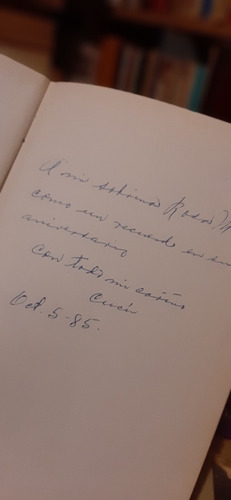 A mi sobrina Rosa M
como un recuerdo en su
aniversario
con todo mi cariño
Cucú
Oct. 5-85.